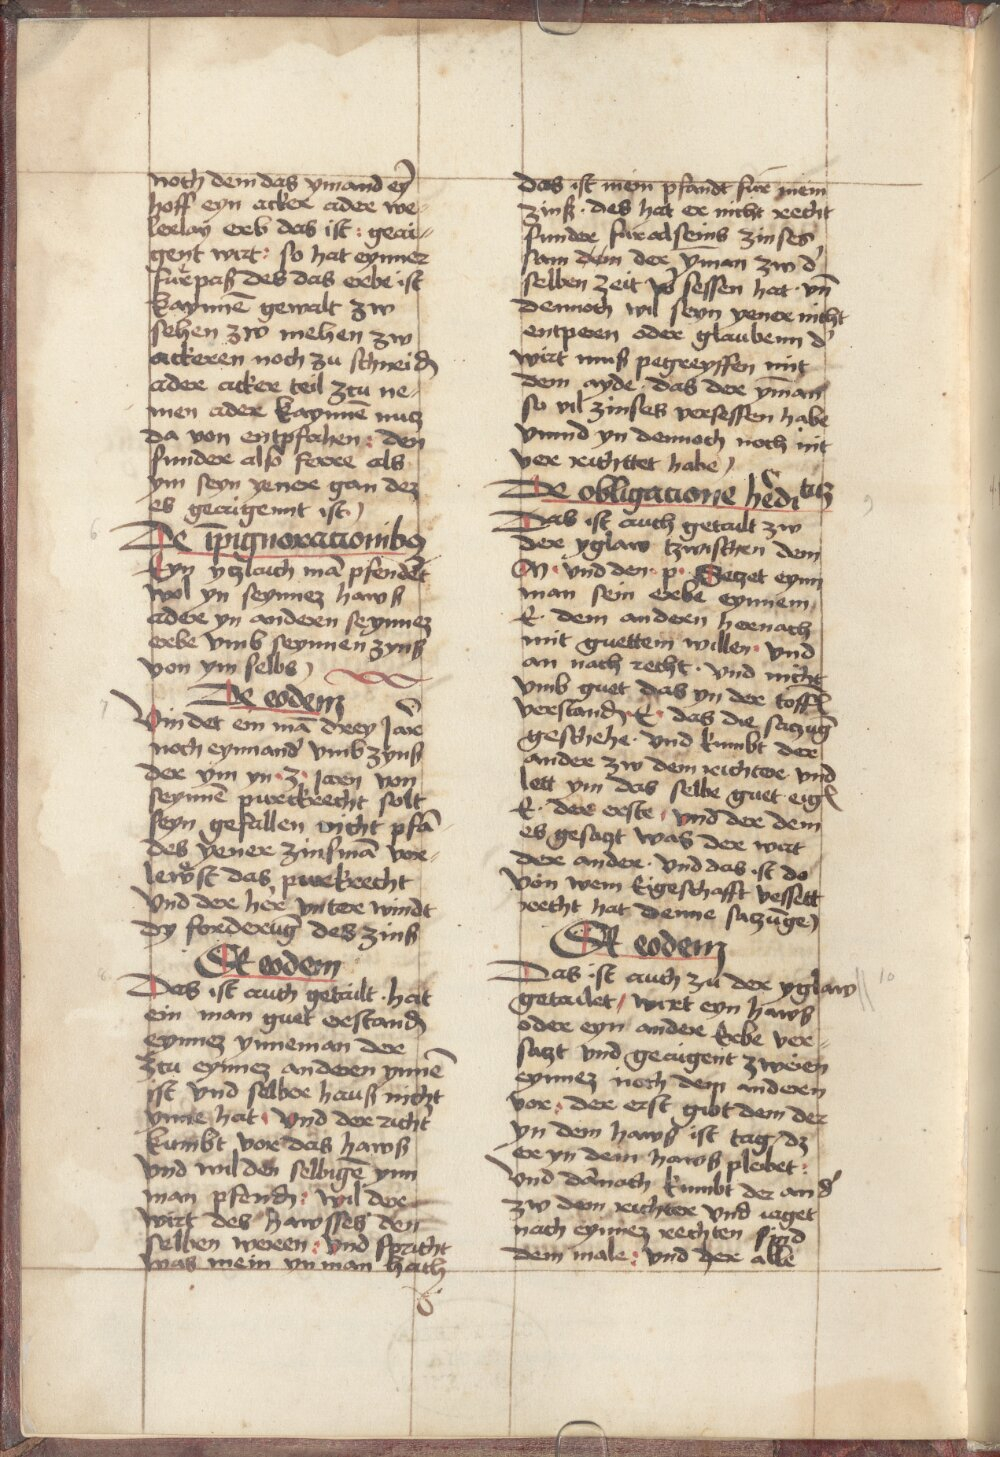 noch dem das ymand ey̅
hoff eyn acker ader we-
lerlay erb das ist : geai-
gent wirt : so hat eynner
furpaß des das erbe ist
kaynne̅ gewalt zw
sehen zw mehen zw
ackeren noch zu schneid̅
ader acker teil zcu ne-
men ader kaynne̅ nucz
da von entpfohen : den
sunder also ferre als
ym seyn yener gan dez
es geaigennt ist
De i̅pignoracionib9
Eyn yczlaich ma̅ pfendet
wol yn seynnez hawß
ader yn anderen seynnez
erbe vmb seynnen zynß
von ym selbs
De eodem
Vindet ein ma̅ drey Jar
noch eynmand vmb zynß
der ym yn · 3 · Jaren von
seynne̅ purckrecht solt
seyn gefallen nicht pfa̅-
des yener zinsma̅ vor-
lewst das purckrecht
vnd der her vnter windt
dy forderug̅ des zinß
Et eodem
Das ist auch getailt · hat
ein man guet erstand̅
eynnez ynneman der
zcu eynnez anderen ynne̅
ist vnd selber hauß nicht
ynne hat · vnd der richt
kumbt vor das hawß
vnd wil den selbige̅ ynn
man pfend̅ : wil der
wirt des hawsses den
selben weren : vnd spricht
was mein yn man hath
das ist mein pfandt fur mein
zinß · des hat er nicht recht
sunder fur als seins zinses
sam dem der yn̅man zw d
selben zeit sessen hat · vn̅
dennoch wil seyn yener nicht
entperen oder glaubenn d
wirt muß pegreyffen mit
dem ayde · das der yn̅man
so vil zinses versessen habe
vnnd yn dennoch noch nit
ver richttet habe
De obligacione hedi tatz
Das ist auch getailt zw
der yglaw tzwischen dem
M · vnd den · p · Setzet eynn
man sein erbe eynnem
E · dem anderen hernach
mit guettem willen · vnd
an nach recht · vnd nicht
vmb guet das yn der toff
verstand̅ · E · das die saczug̅
geschehe · vnd kumbt der
ander zw dem richter vnd
lett ym das selbe guet eig
E · der erste · vnd der dem
es gesaczt was der wirt
der ander · vnd das ist do
von wem Eigeschafft vessett
recht hat denne saczunge
Et eodem
Das ist auch zu der yglaw
getailet · wirt eyn hawß
oder eyn andere Erbe ver-
saczt vnd geaigent zweien
eynnez noch dem anderen
vor : der erst gibt dem der
yn dem hawß ist tag dz
er yn dem hawß pleibet :
vnd darnoch kumbt der and
zw dem richter vnd
nach eynnez rechten sind
dem male : vnd der alle